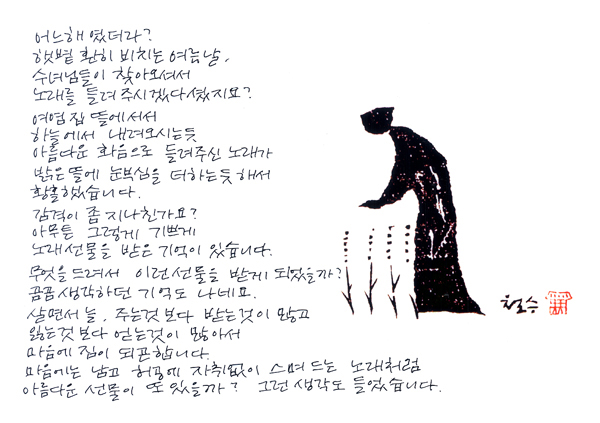 어느해 였더라?
햇볕 환히 비치는 여름날,
수녀님들이 찾아오셔서
노래를 들려 주시겠다셨지요?
여염집 뜰에서서
하늘에서 내려오시는듯
아름다운 화음으로 들려주신 노래가
밝은 뜰에 눈부심을 더하는듯해서
황홀했습니다.
감격이 좀 지나친가요?
아무튼 그렇게 기쁘게
노래선물을 받은 기억이 있습니다.
무엇을 드려서 이런선물을 받게 되었을까?
곰곰 생각하던 기억도 나네요.
살면서 늘, 주는것 보다 받는것이 많고
잃는것 보다 얻는것이 많아서
마음에 짐이 되곤합니다.
마음에는 남고 허공에 자취없이 스며드는 노래처럼
아름다운 선물이 또 있을까? 그런 생각도 들었습니다.
철수